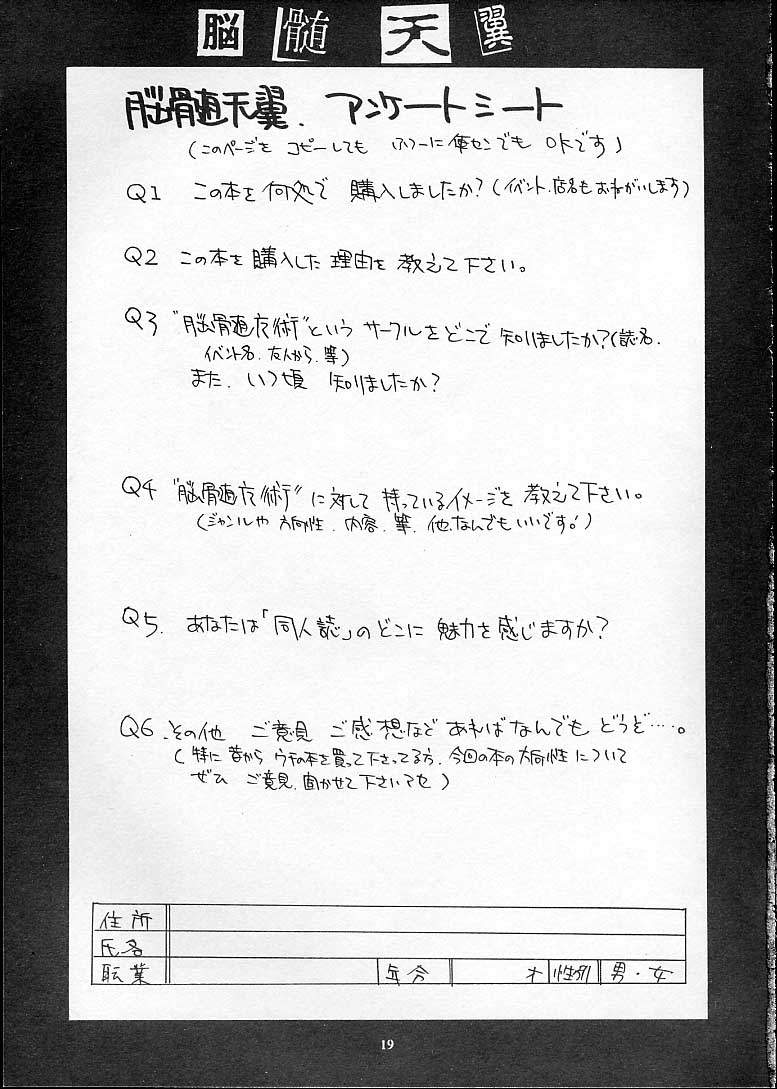 脳髄天翼
脳髄天翼.アンケートシート
(このページを コピーしても フツーに便センでも OKです)
Q1 この本を何処で 購入しましたか?(イベント.店名もおねがいします)
Q2 この本を購入した理由を教えて下さい。
Q3 "脳髄魔術"という サークルをどこで 知りましたか?(誌名.
イベント名.友人から.等)
また.いつ頃 知りましたか?
Q4 "脳髄魔術"に対して 持っているイメージを 教えて下さい。
(ジャンルや 方向性.内容.等.他.なんでもいいです!)
Q5. あなたは「同人誌」のどこに 魅力を感じますか?
Q6.その他 ご意見 ご感想など あればなんでも どうぞ….。
(特に 昔から ウチの本を買って下さってる方.今回の本の方向性について
ぜひ ご意見.聞かせて下さいませ)
住所
氏名
職業 年令 才 性別 男・女
19